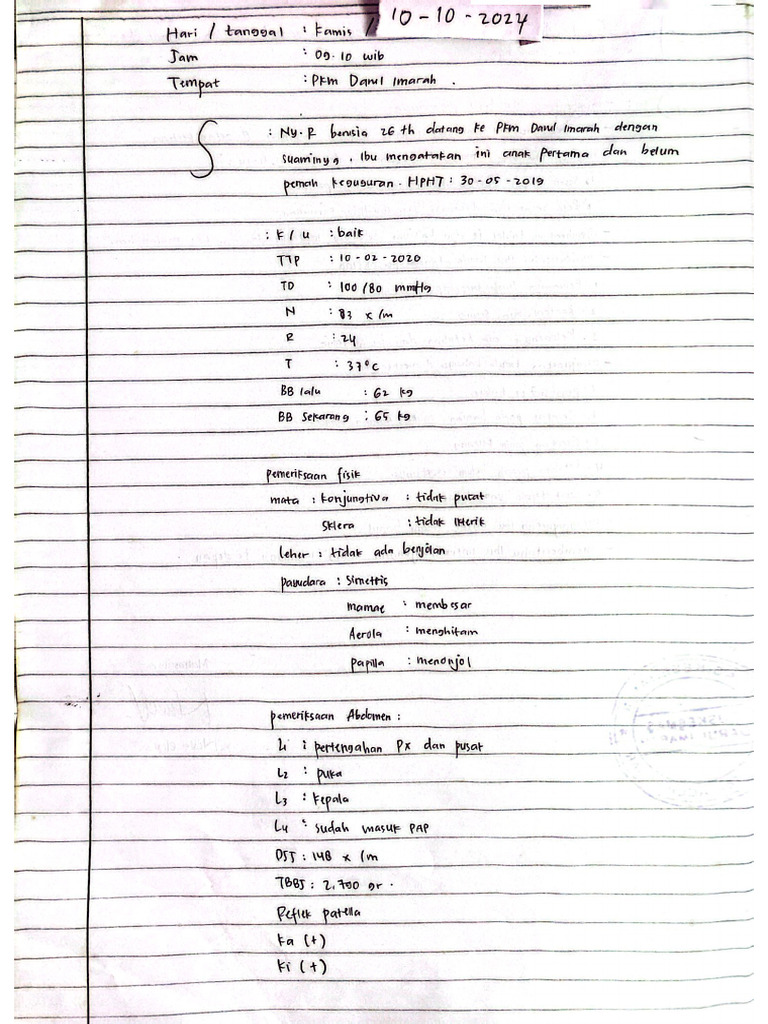 Hari / tanggal : Kamis / 10-10-2024
Jam : 09.10 wib
Tempat : PKM Darul Imarah .
S : Ny. R berusia 26 th datang ke PKM Darul Imarah dengan
suaminya . Ibu mengatakan ini anak pertama dan belum
pernah keguguran . HPHT : 30-05-2019
: K / U : baik
TTP : 10-02-2020
TD : 100/80 mmHg
N : 83 x/m
R : 24
T : 37°C
BB lalu : 62 kg
BB Sekarang : 65 kg
pemeriksaan fisik
mata : Konjungtiva : tidak pucat
Sklera : tidak Ikterik
leher : tidak ada benjolan
payudara : Simetris
mamae : membesar
Aerola : menghitam
papilla : menonjol
pemeriksaan Abdomen :
L1 : pertengahan PX dan pusat
L2 : puka
L3 : kepala
L4 : sudah masuk PAP
DJJ : 148 x/m
TBBJ : 2.790 gr .
Reflek patella
ka (+)
ki (+)